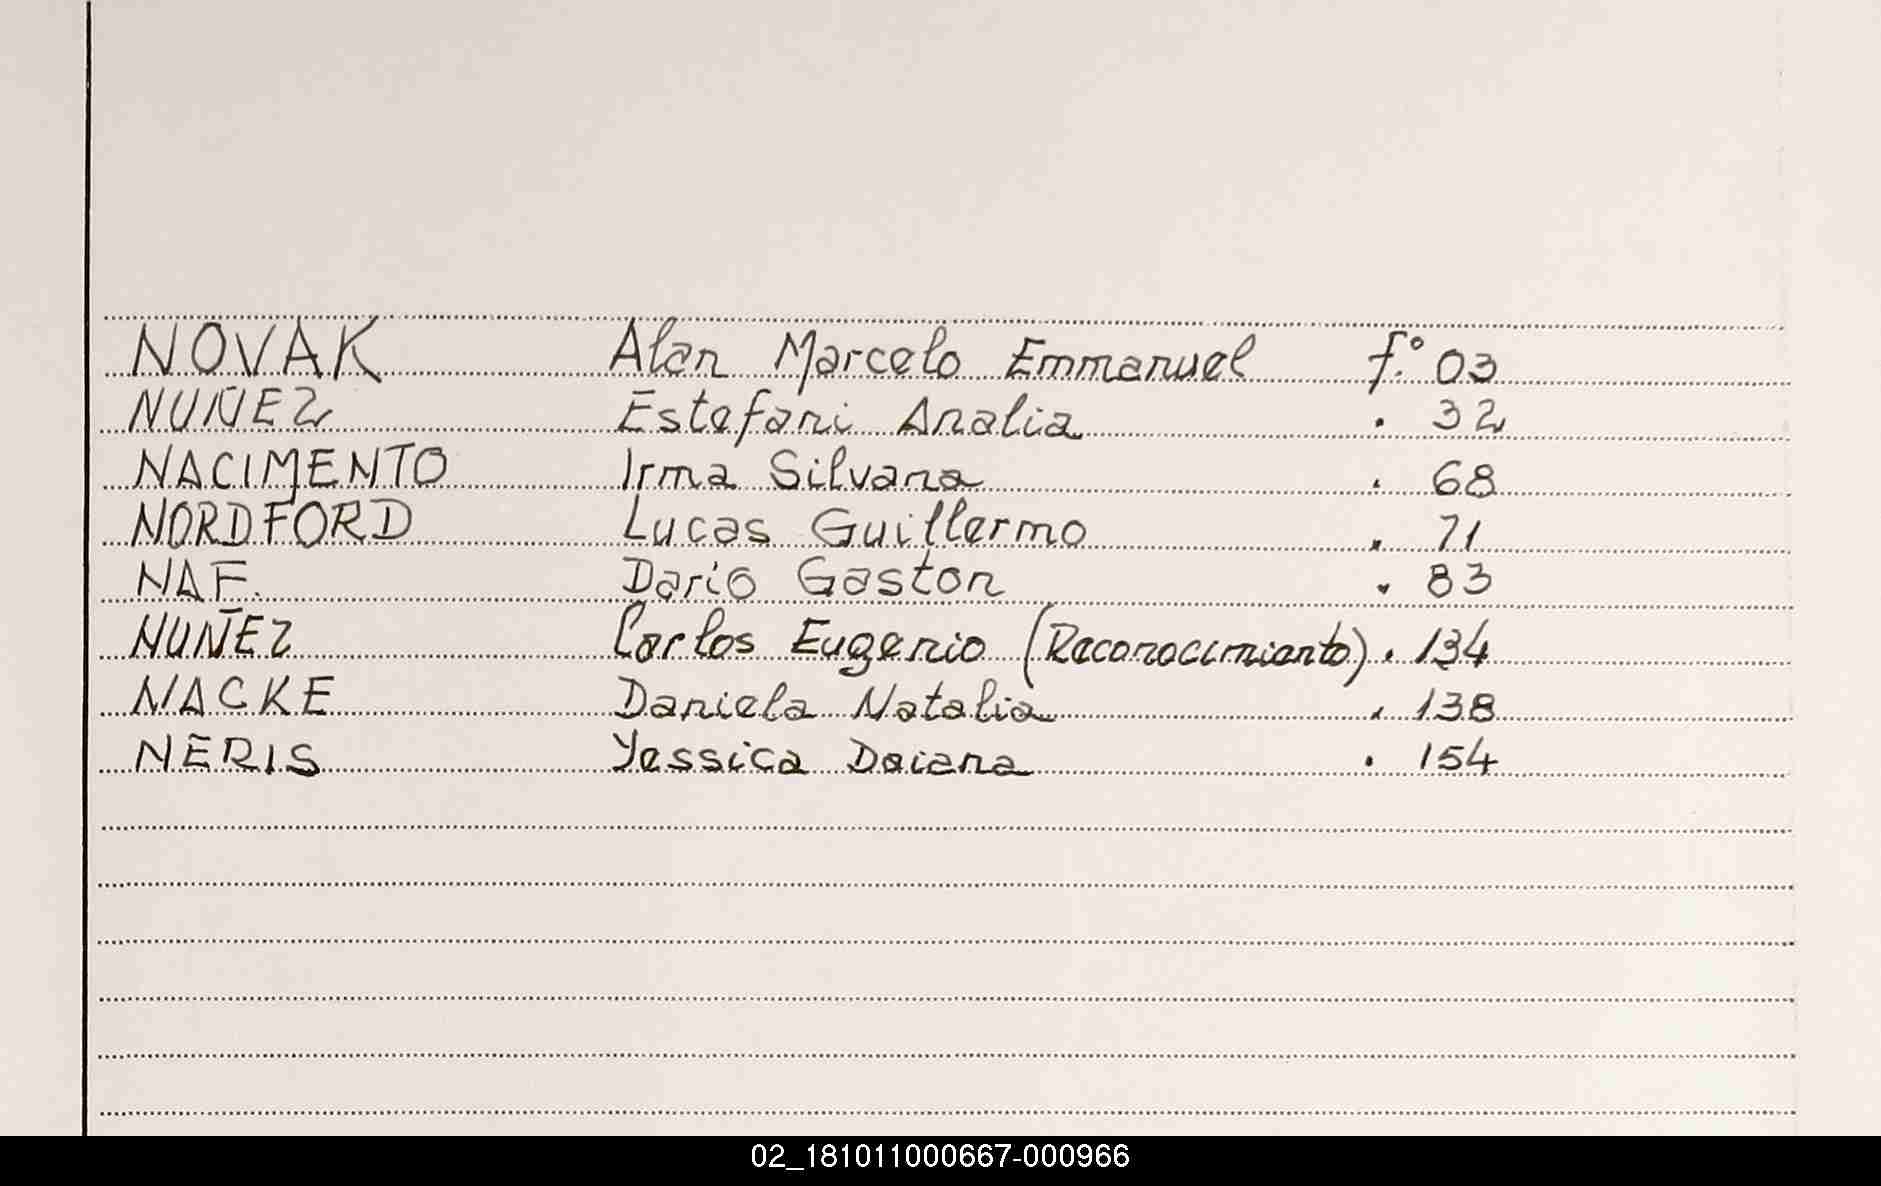 NOVAK Alan Marcelo Emmanuel f.º 03
NUÑEZ Estefani Analia . 32
NACIMENTO Irma Silvana . 68
NORDFORD Lucas Guillermo . 71
NAF. Dario Gaston . 83
NUÑEZ Carlos Eugenio (Reconocimiento) . 134
NACKE Daniela Natalia . 138
NERIS Yessica Daiana . 154
02_181011000667-000966